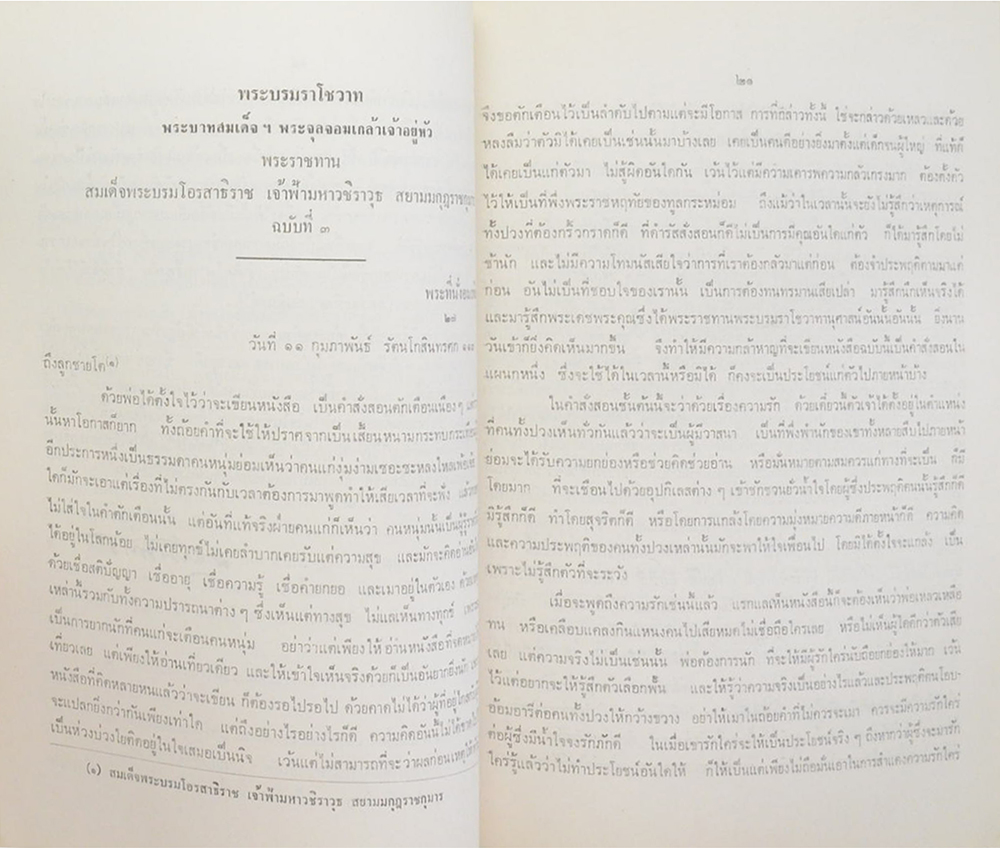 พระบรมราโชวาท
พระบาทสมเด็จ ฯ พระจุลจอมเกล้าเจ้าอยู่หัว
พระราชทาน
สมเด็จพระบรมโอรสาธิราช เจ้าฟ้ามหาวชิราวุธ สยามมกุฎราชกุมาร
ฉบับที่ ๓
พระที่นั่ง
วันที่ ๑๑ กุมภาพันธ์ รัตนโกสินทรศก
ถึงลูกชายโต(๑)
ด้วยพ่อได้ตั้งใจไว้ว่าจะเขียนหนังสือ เป็นคำสั่งสอนตักเตือนเนือง ๆ
นั้นหาโอกาสก็ยาก ทั้งถ้อยคำที่จะใช้ให้ปราศจากเป็นเสี้ยนหนามกระทบกระเทือน
อีกประการหนึ่งเป็นธรรมดาคนหนุ่มย่อมเห็นว่าคนแก่งุ่มง่ามเซอะซะหลงใหลเพ้อเจ้อ
ใดก็มักจะเอาแต่เรื่องที่ไม่ตรงกันกับเวลาต้องการมาพูดทำให้เสียเวลาที่จะฟัง
ไม่ใส่ใจในคำตักเตือนนั้น แต่อันที่แท้จริงฝ่ายคนแก่ก็เห็นว่า คนหนุ่มนั้นเป็นผู้
ได้อยู่ในโลกน้อย ไม่เคยทุกข์ไม่เคยลำบากเคยรับแต่ความสุข และมักจะคิดอ่าน
ด้วยเชื่อสติปัญญา เชื่ออายุ เชื่อความรู้ เชื่อคำยกยอ และเมาอยู่ในตัวเอง
เหล่านี้รวมกับทั้งความปรารถนาต่าง ๆ ซึ่งเห็นแต่ทางสุข ไม่แลเห็นทางทุกข์
เป็นการยากนักที่คนแก่จะเตือนคนหนุ่ม อย่าว่าแต่เพียงให้อ่านหนังสือที่
เที่ยวเลย แต่เพียงให้อ่านเที่ยวเดียว และให้เข้าใจเห็นจริงด้วยก็เป็นอันยากยิ่งนัก
หนังสือที่คิดหลายหนแล้วว่าจะเขียน ก็ต้องรอไปรอไป ด้วยคาดไม่ได้ว่าผู้ที่อยู่ไกล
จะแปลกยิ่งกว่ากันเพียงเท่าใด แต่ถึงอย่างไรอย่างไรก็ดี ความคิดอันนี้ไม่ได้
เป็นห่วงบ่วงใยคิดอยู่ในใจเสมอเป็นนิจ เว้นแต่ไม่สามารถที่จะว่าผลก่อนเหตุ
(๑) สมเด็จพระบรมโอรสาธิราช เจ้าฟ้ามหาวชิราวุธ สยามมกุฎราชกุมาร
๒๑
จึงขอตักเตือนไว้เป็นลำดับไปตามแต่จะมีโอกาส การที่กล่าวทั้งนี้ ใช่จะกล่าวด้วยเหลวและด้วย
หลงลืมว่าตัวมิได้เคยเป็นเช่นนั้นมาบ้างเลย เคยเป็นคนดีอย่างยิ่งมาตั้งแต่เด็กจนผู้ใหญ่ ที่แท้ก็
ได้เคยเป็นแก่ตัวมา ไม่สู้ผิดอันใดกัน เว้นไว้แต่มีความเคารพความกลัวเกรงมาก ต้องตั้งตัว
ไว้ให้เป็นที่พึ่งพระราชหฤทัยของทูลกระหม่อม ถึงแม้ว่าในเวลานั้นจะยังไม่รู้สึกว่าเหตุการณ์
ทั้งปวงที่ต้องกริ้วกราดก็ดี ที่ดำรัสสั่งสอนก็ดีไม่เป็นการมีคุณอันใดแก่ตัว ก็ได้มารู้สึกโดยไม่
ช้านัก และไม่มีความโทมนัสเสียใจว่าการที่เราต้องกลัวมาแต่ก่อน ต้องจำประพฤติตามมาแต่
ก่อน อันไม่เป็นที่ชอบใจของเรานั้น เป็นการต้องทนทรมานเสียเปล่า มารู้สึกนึกเห็นจริงได้
และมารู้สึกพระเดชพระคุณซึ่งได้พระราชทานพระบรมราโชวาทานุศาสน์อันนั้นอันนั้น ยิ่งนาน
วันเข้าก็ยิ่งคิดเห็นมากขึ้น จึงทำให้มีความกล้าหาญที่จะเขียนหนังสือฉบับนี้เป็นคำสั่งสอนใน
แผนกหนึ่ง ซึ่งจะใช้ได้ในเวลานี้หรือมิได้ ก็คงจะเป็นประโยชน์แก่ตัวไปภายหน้าบ้าง
ในคำสั่งสอนชั้นต้นนี้จะว่าด้วยเรื่องความรัก ด้วยเดี๋ยวนี้ตัวเจ้าได้ตั้งอยู่ในตำแหน่ง
ที่คนทั้งปวงเห็นทั่วกันแล้วว่าจะเป็นผู้มีวาสนา เป็นที่พึ่งพำนักของเขาทั้งหลายสืบไปภายหน้า
ย่อมจะได้รับความยกย่องหรือช่วยคิดช่วยอ่าน หรือมั่นหมายตามสมควรแก่ทางที่จะเป็น ก็มี
โดยมาก ที่จะเชือนไปด้วยอุปกิเลสต่าง ๆ เข้าชักชวนยั่วน้ำใจโดยผู้ซึ่งประพฤติตนนั้นรู้สึกก็ดี
มิรู้สึกก็ดี ทำโดยสุจริตก็ดี หรือโดยการแกล้งโดยความมุ่งหมายความดีภายหน้าก็ดี ความคิด
และความประพฤติของคนทั้งปวงเหล่านั้นมักจะพาให้ใจเฟื่อนไป โดยมิได้ตั้งใจจะแกล้ง เป็น
เพราะไม่รู้สึกตัวที่จะระวัง
เมื่อจะพูดถึงความรักเช่นนี้แล้ว แรกแลเห็นหนังสือนี้ก็จะต้องเห็นว่าพ่อเหลวเหลือ
ทน หรือเคลือบแคลงกินแหนงคนไปเสียหมดไม่เชื่อถือใครเลย หรือไม่เห็นผู้ใดดีกว่าตัวเสีย
เลย แต่ความจริงไม่เป็นเช่นนั้น พ่อต้องการนัก ที่จะให้มีผู้รักใคร่นับถือยกย่องให้มาก เว้น
ไว้แต่อยากจะให้รู้สึกตัวเลือกฟั้น และให้รู้ว่าความจริงเป็นอย่างไรแล้วและประพฤติตนโอบ-
อ้อมอารีต่อคนทั้งปวงให้กว้างขวาง อย่าให้เมาในถ้อยคำที่ไม่ควรจะเมา ควรจะมีความรักใคร่
ต่อผู้ซึ่งมีน้ำใจจงรักภักดี ในเมื่อเขารักใคร่จะให้เป็นประโยชน์จริง ๆ ถึงหากว่าผู้ซึ่งจะมารัก
ใคร่รู้แล้วว่าไม่ทำประโยชน์อันใดให้ ก็ให้เป็นแต่เพียงไม่ถือมั่นเอาในการสำแดงความรักใคร่